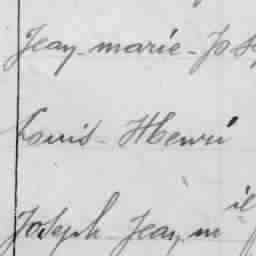 Jean-marie-Jos
Louis-Henri
Joseph Jean m